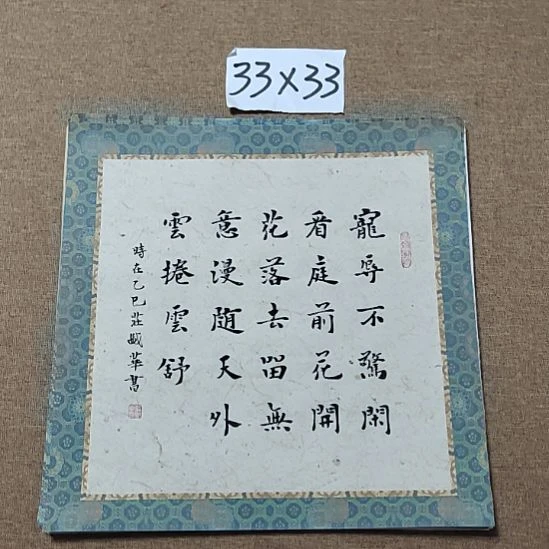 33X33
寵辱不驚閑
看庭前花開
花落去留無
意漫隨天外
雲捲雲舒
時在乙巳莊戚華書